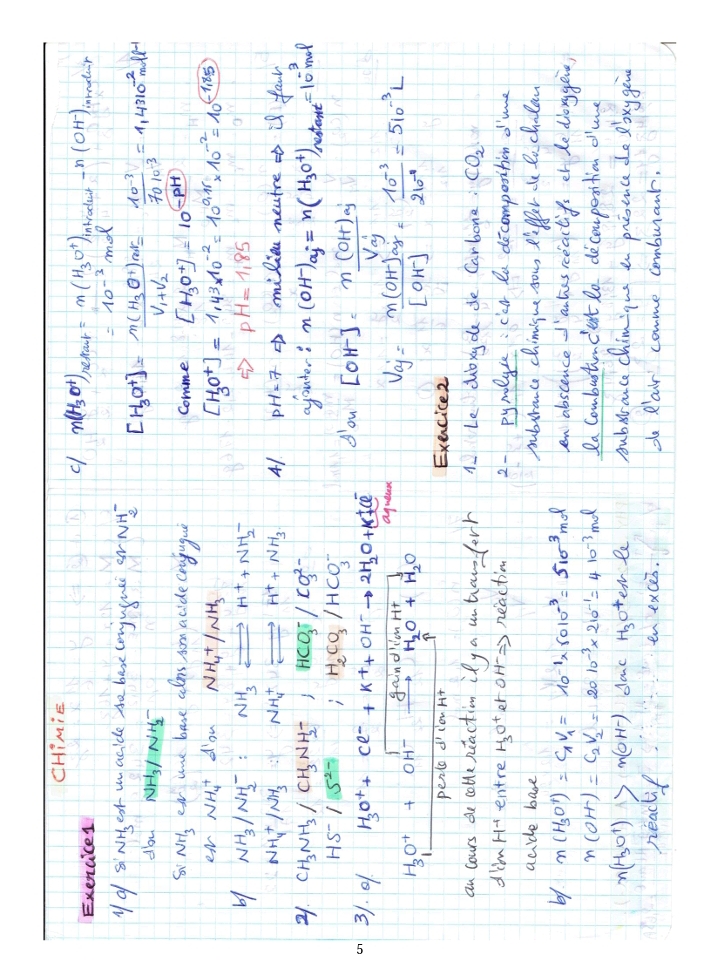 CHIMIE
Exercice 1
1/ a) Si NH3 est un acide sa base conjuguée est NH2-
d'où NH3/NH2-
Si NH3 est une base alors son acide conjugué
est NH4+ d'où NH4+/NH3
b/ NH3/NH2- : NH3 ⇌ H+ + NH2-
NH4+/NH3 : NH4+ ⇌ H+ + NH3
2/. CH3NH3/CH3NH2- ; HCO3-/CO3^2-
HS-/S^2- ; H2CO3/HCO3-
3/. a/ H3O+ + Cl- + K+ + OH- → 2H2O + K+ + Cl-
aqueux
gain d'ion H+
H3O+ + OH- → H2O + H2O
perte d'ion H+
au cours de cette réaction il y a un transfert
d'ion H+ entre H3O+ et OH- ⇒ réaction
acide base
b/. n(H3O+) = C1V1 = 10^-1 x 50 10^-3 = 5 10^-3 mol
n(OH-) = C2V2 = 20 10^-3 x 2 10^-1 = 4 10^-3 mol
n(H3O+) > n(OH-) donc H3O+ est le
réactif en excès.
c/ n(H3O+)restant = n(H3O+)introduit - n(OH-)introduit
= 10^-3 mol
[H3O+] = n(H3O+)rest / V1+V2 = 10^-3 / 70 10^-3 = 1,43 10^-2 mol l^-1
Comme [H3O+] = 10^-pH
[H3O+] = 1,43 x 10^-2 = 10^0,15 x 10^-2 = 10^-1,85
⇒ pH = 1,85
4/. pH = 7 ⇒ milieu neutre ⇒ il faut
ajouter : n(OH-)aj = n(H3O+)restant = 10^-3 mol
d'où [OH-] = n(OH-)aj / Vaj
Vaj = n(OH-)aj / [OH-] = 10^-3 / 2 10^-1 = 5 10^-3 L
Exercice 2
1- Le dioxyde de Carbone : CO2
2- pyrolyse : c'est la décomposition d'une
substance chimique sous l'effet de la chaleur
en abscence d'autres réactifs et de dioxygène,
la Combustion c'est la décomposition d'une
substance chimique en présence de l'oxygène
de l'air comme comburant.
5